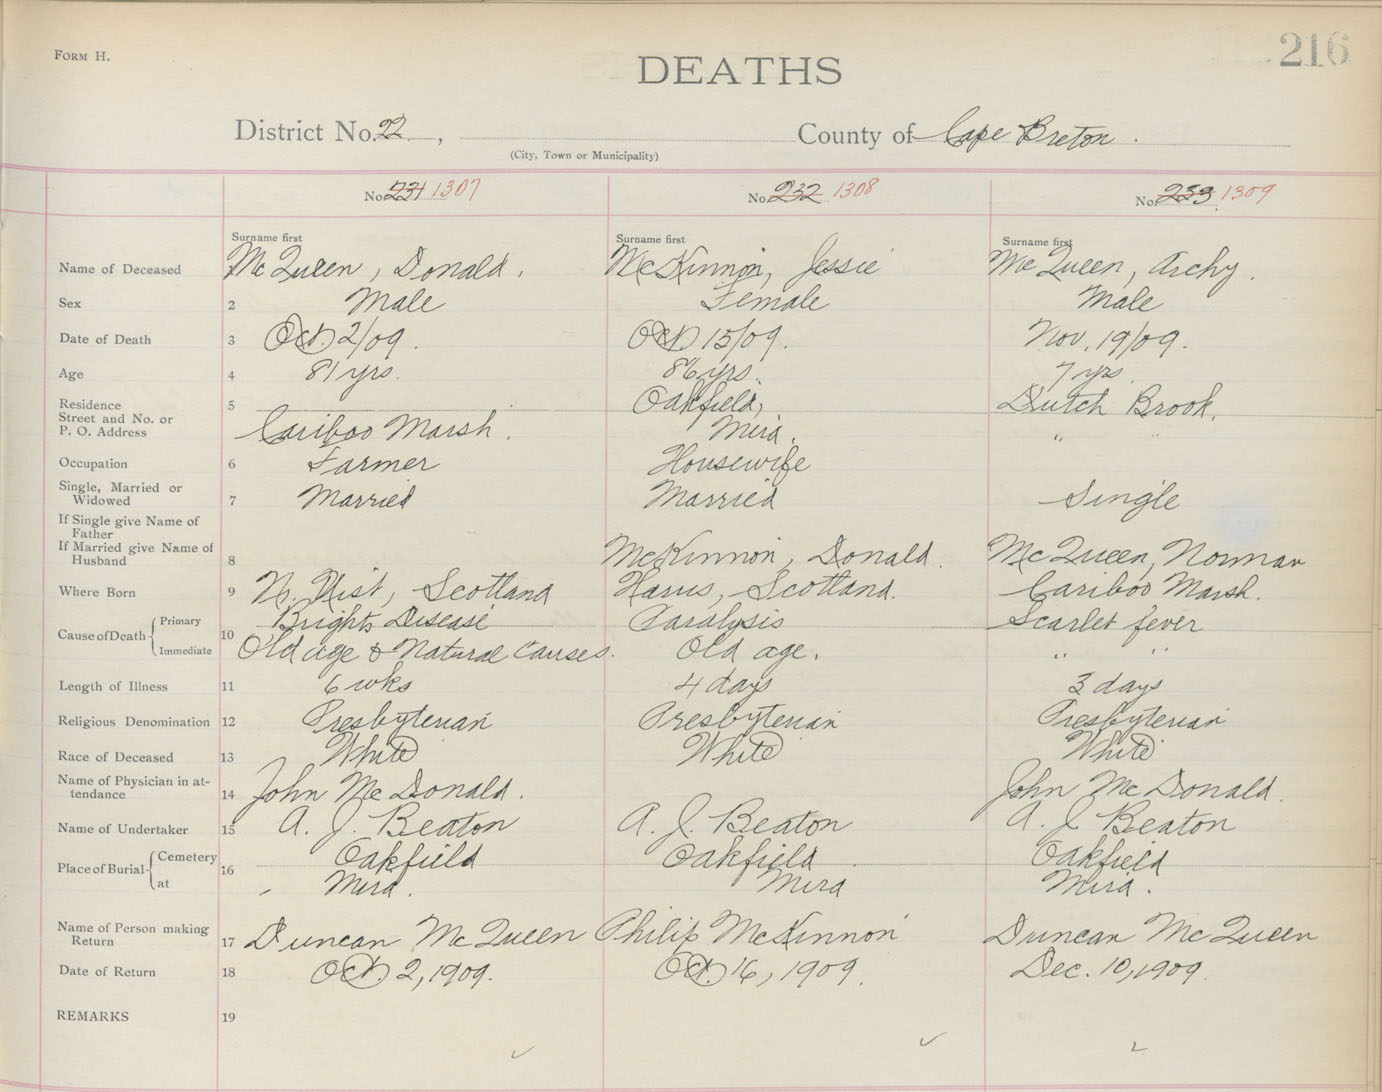 FORM H.
216
DEATHS
District No. 22, County of Cape Breton.
(City, Town or Municipality)
No. 231 1307 No. 232 1308 No. 233. 1309
Surname first Surname first Surname first
Name of Deceased McQueen, Donald. McKinnon, Jessie McQueen, Archy.
Sex 2 Male Female Male
Date of Death 3 Oct. 2/09. Oct. 15/09. Nov. 19/09.
Age 4 81 yrs. 86 yrs. 7 yrs.
Residence 5 Oakfield, Dutch Brook.
Street and No. or
P. O. Address Cariboo Marsh. Mira. " "
Occupation 6 Farmer Housewife
Single, Married or
Widowed 7 Married Married Single
If Single give Name of
Father
If Married give Name of
Husband 8 McKinnon, Donald. McQueen, Norman
Where Born 9 N. Uist, Scotland Harris, Scotland. Cariboo Marsh.
Cause of Death Primary 10 Brights Disease Paralysis Scarlet fever
Immediate Old age & Natural Causes. Old age. " "
Length of Illness 11 6 wks 4 days 3 days
Religious Denomination 12 Presbyterian Presbyterian Presbyterian
Race of Deceased 13 White White White
Name of Physician in at-
tendance 14 John McDonald. John McDonald.
Name of Undertaker 15 A. J. Beaton A. J. Beaton A. J. Beaton
Place of Burial Cemetery 16 Oakfield Oakfield Oakfield
at Mira. Mira Mira.
Name of Person making
Return 17 Duncan McQueen Philip McKinnon Duncan McQueen
Date of Return 18 Oct. 2, 1909. Oct. 16, 1909. Dec. 10, 1909.
REMARKS 19